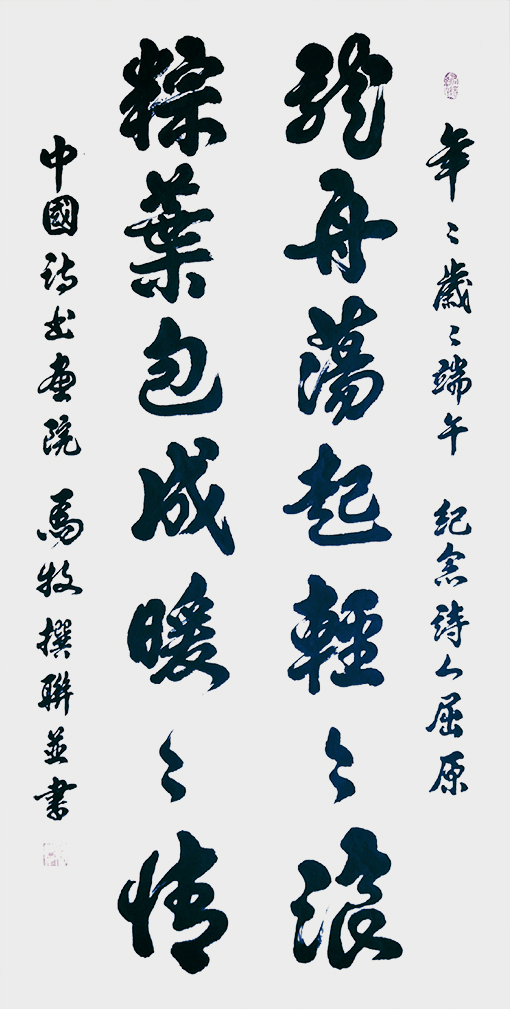 年〻歲〻端午 紀念詩人屈原
龍舟蕩起輕〻浪
粽葉包成暖〻情
中國詩書畫院 馬牧撰聯並書